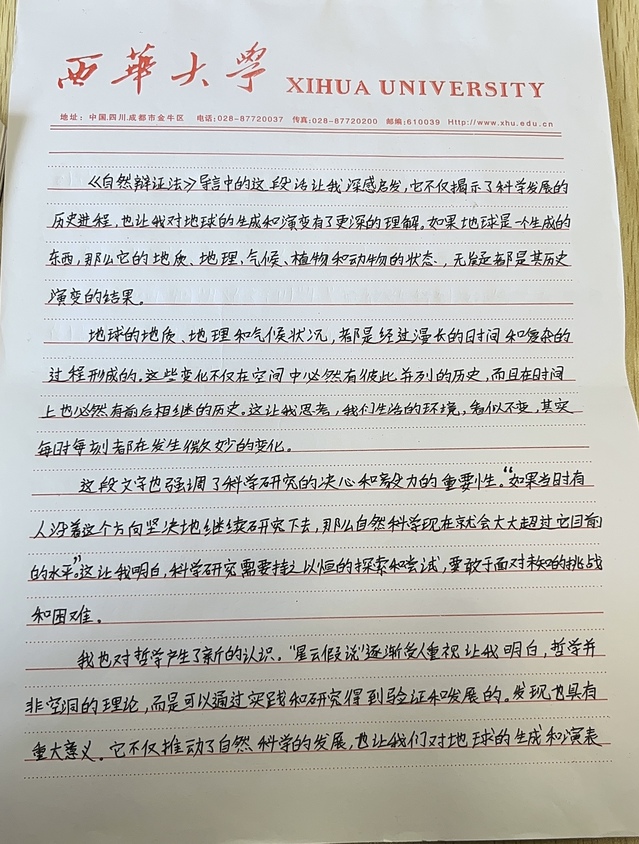 西華大學 XIHUA UNIVERSITY
地址：中国.四川.成都市金牛区 电话:028-87720037 传真:028-87720200 邮编:610039 Http://www.xhu.edu.cn
《自然辩证法》导言中的这段话让我深感启发，它不仅揭示了科学发展的
历史进程，也让我对地球的生成和演变有了更深的理解。如果地球是一个生成的
东西，那么它的地质、地理、气候、植物和动物的状态，无疑都是其历史
演变的结果。
地球的地质、地理和气候状况，都是经过漫长的时间和复杂的
过程形成的。这些变化不仅在空间中必然有彼此并列的历史，而且在时间
上也必然有前后相继的历史。这让我思考，我们生活的环境，看似不变，其实
每时每刻都在发生微妙的变化。
这段文字也强调了科学研究的决心和毅力的重要性。“如果当时有
人沿着这个方向坚决地继续研究下去，那么自然科学现在就会大大超过它目前
的水平”。这让我明白，科学研究需要持之以恒的探索和尝试，要敢于面对未知的挑战
和困难。
我也对哲学产生了新的认识。“星云假说”逐渐受人重视让我明白，哲学并
非空洞的理论，而是可以通过实践和研究得到验证和发展的。发现也具有
重大意义。它不仅推动了自然科学的发展，也让我们对地球的生成和演表